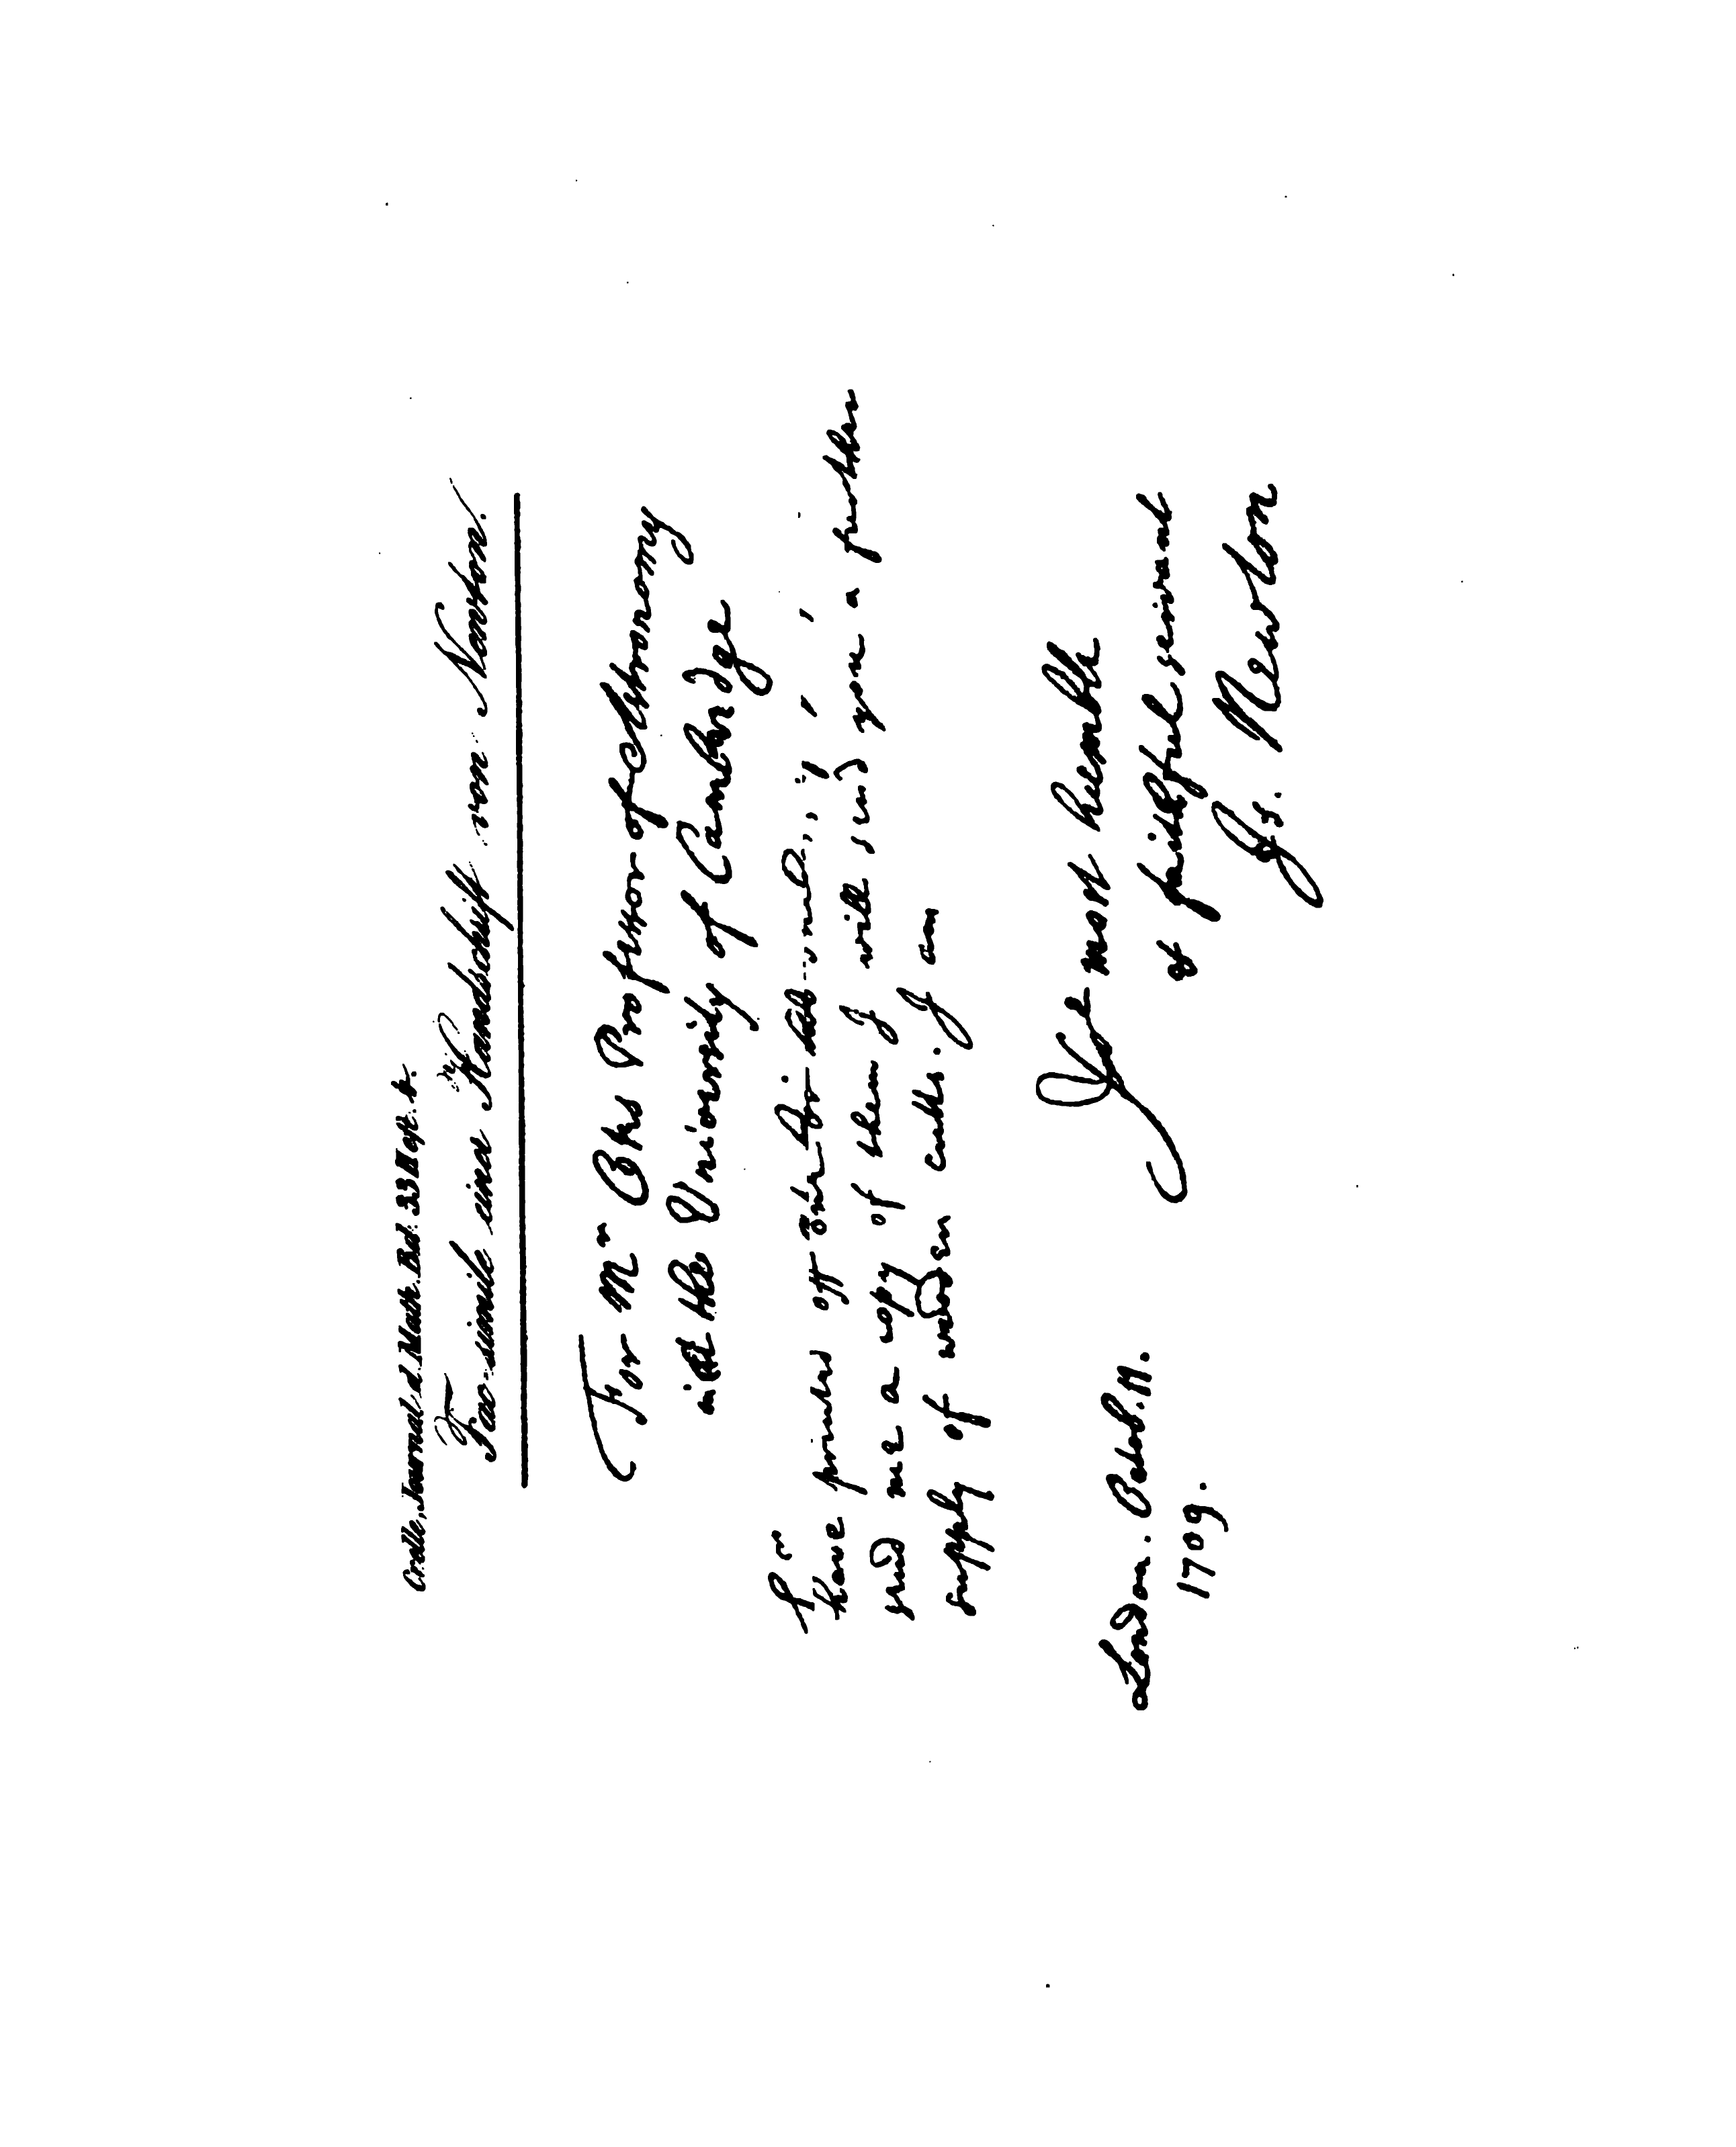 Crelle, Journal d. Math. Bd. 33 Heft. 4.
Fac-simile einer Handschrift von Newton.
For Mr Cotes Professor of Astronomy
in the University of Cambridge
Sr
have printed off
send me a copy of them I will send you a further
supply of wooden cutts. I am
Your most humble
& faithful servant
Is. Newton
London. Octob. 11.
1709.